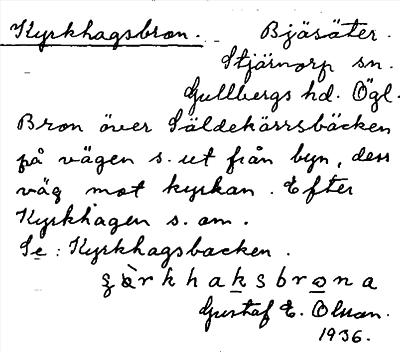 Kyrkhagsbron. Bjäsäter.
Stjärnorp sn.
Gullbergs hd. Ögl.
Bron över Säldekärrsbäcken
på vägen s. ut från byn, dess
väg mot kyrkan. Efter
Kyrkhagen s. om.
Se: Kyrkhagsbacken.
çàrkhaksbrona
Gustaf E. Olsson.
1936.